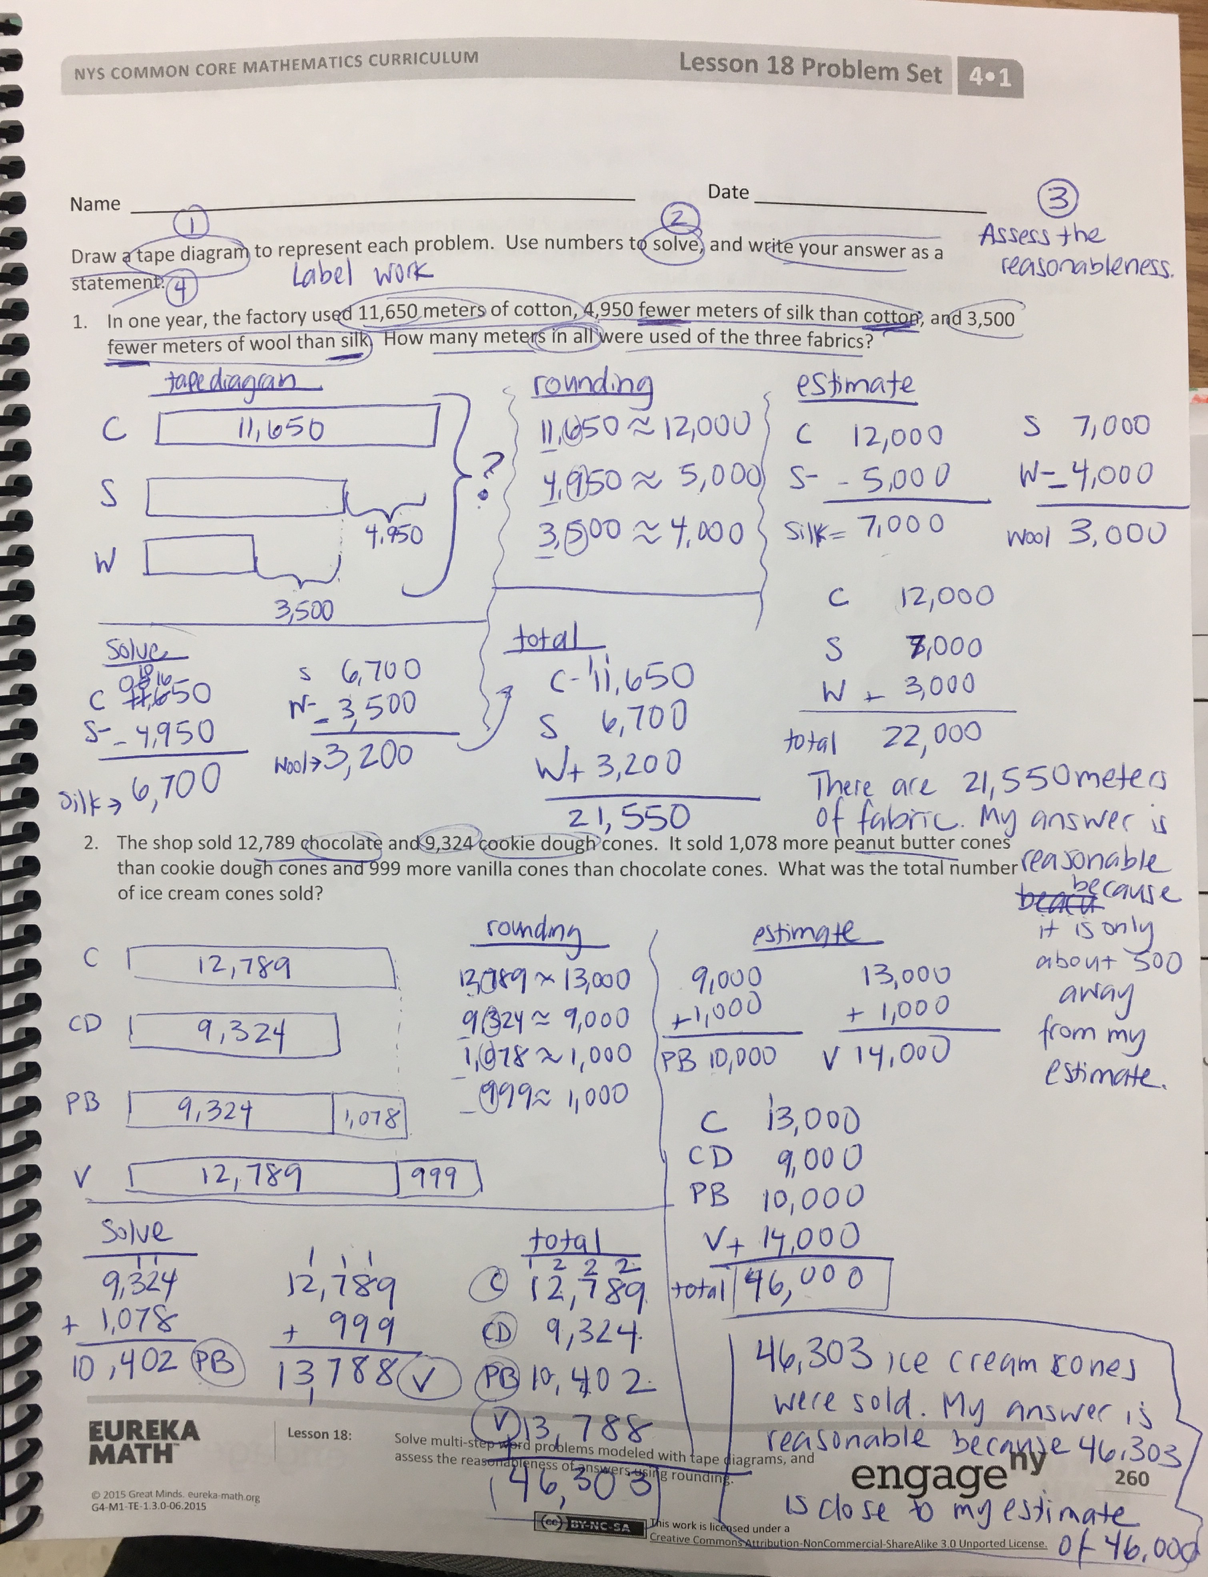 NYS COMMON CORE MATHEMATICS CURRICULUM
Lesson 18 Problem Set 4•1
Name
Date
1
2
3
Assess the
reasonableness.
Draw a tape diagram to represent each problem. Use numbers to solve, and write your answer as a
statement. 4
Label work
1. In one year, the factory used 11,650 meters of cotton, 4,950 fewer meters of silk than cotton, and 3,500
fewer meters of wool than silk. How many meters in all were used of the three fabrics?
tape diagram
C 11,650
S
4,950
W
3,500
?
rounding
11,650 ≈ 12,000
4,950 ≈ 5,000
3,500 ≈ 4,000
estimate
C 12,000
S- - 5,000
Silk= 7,000
S 7,000
W- - 4,000
Wool 3,000
C 12,000
S 7,000
W + 3,000
total 22,000
Solve
C 11,650
S- - 4,950
Silk→ 6,700
S 6,700
W- - 3,500
Wool→ 3,200
total
C- 11,650
S 6,700
W+ 3,200
21,550
There are 21,550 meters
of fabric. My answer is
reasonable
because
it is only
about 500
away
from my
estimate.
2. The shop sold 12,789 chocolate and 9,324 cookie dough cones. It sold 1,078 more peanut butter cones
than cookie dough cones and 999 more vanilla cones than chocolate cones. What was the total number
of ice cream cones sold?
C 12,789
CD 9,324
PB 9,324 1,078
V 12,789 999
rounding
12,789 ≈ 13,000
9,324 ≈ 9,000
1,078 ≈ 1,000
999 ≈ 1,000
estimate
9,000
+1,000
PB 10,000
13,000
+ 1,000
V 14,000
C 13,000
CD 9,000
PB 10,000
V+ 14,000
total 46,000
Solve
1 1
9,324
+ 1,078
10,402 PB
1 1 1
12,789
+ 999
13,788 V
total
1 2 2 2
C 12,789
CD 9,324
PB 10,402
V 13,788
46,303
46,303 ice cream cones
were sold. My answer is
reasonable because 46,303
is close to my estimate
of 46,000
EUREKA
MATH™
Lesson 18:
Solve multi-step word problems modeled with tape diagrams, and
assess the reasonableness of answers using rounding.
engageny
260
© 2015 Great Minds. eureka-math.org
G4-M1-TE-1.3.0-06.2015
(cc) BY-NC-SA
This work is licensed under a
Creative Commons Attribution-NonCommercial-ShareAlike 3.0 Unported License.